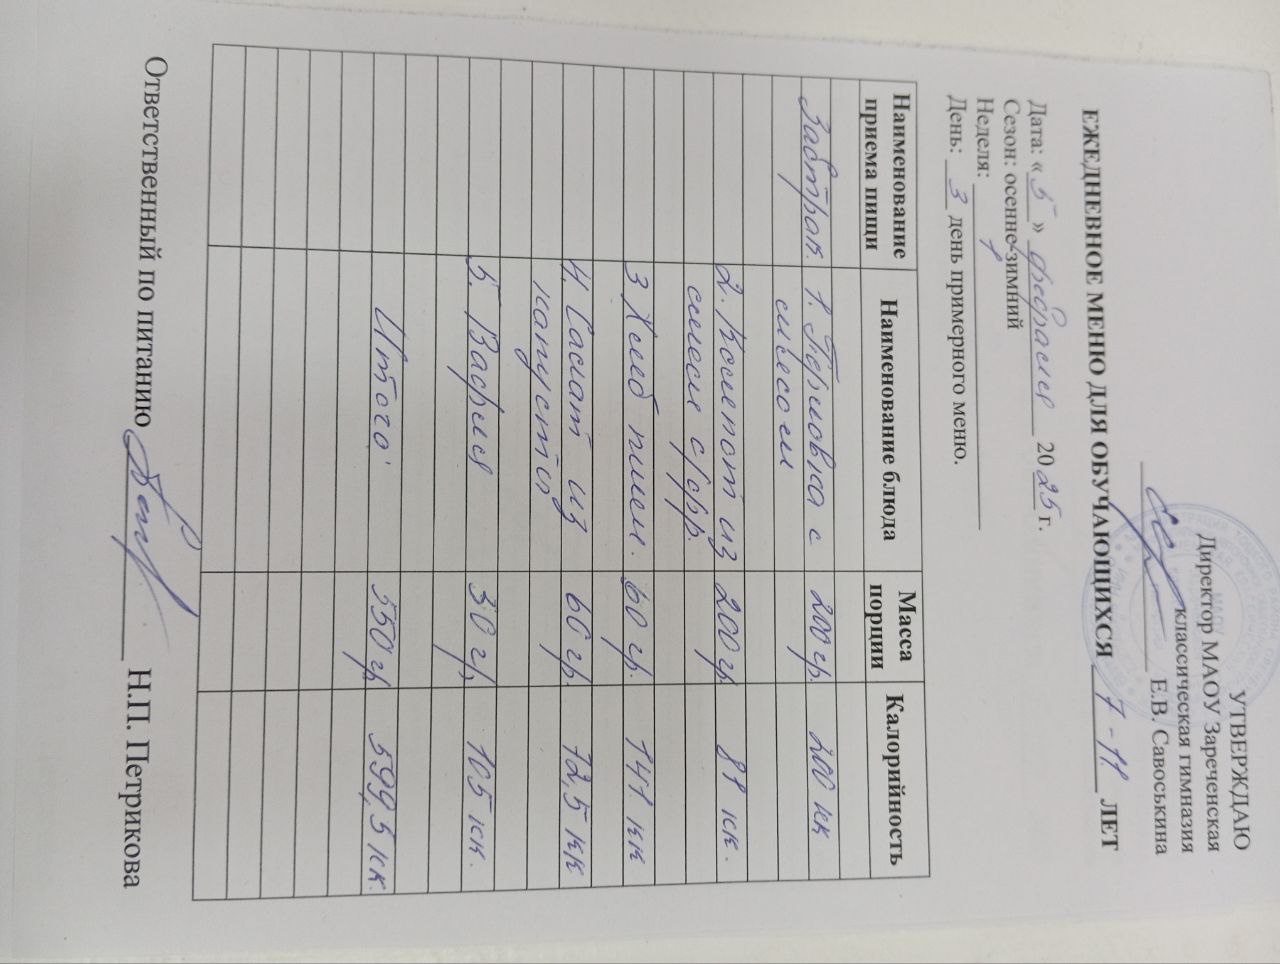 УТВЕРЖДАЮ
Директор МАОУ Зареченская
классическая гимназия
Е.В. Савоськина
ЕЖЕДНЕВНОЕ МЕНЮ ДЛЯ ОБУЧАЮЩИХСЯ 7-11 ЛЕТ
Дата: « 5 » февраля 2025 г.
Сезон: осенне-зимний
Неделя: 1
День: 3 день примерного меню.
Наименование приема пищи Наименование блюда Масса порции Калорийность
Завтрак. 1. Перловка с 200 гр. 200 кк
мясом
2. Компот из 200 гр. 81 кк.
смеси с/фр.
3 Хлеб пшен. 60 гр. 141 кк
4. Салат из 60 гр. 72,5 кк
капусты
5. Вафля 30 гр. 105 кк.
Итого: 550 гр. 599,5 кк.
Ответственный по питанию Н.П. Петрикова